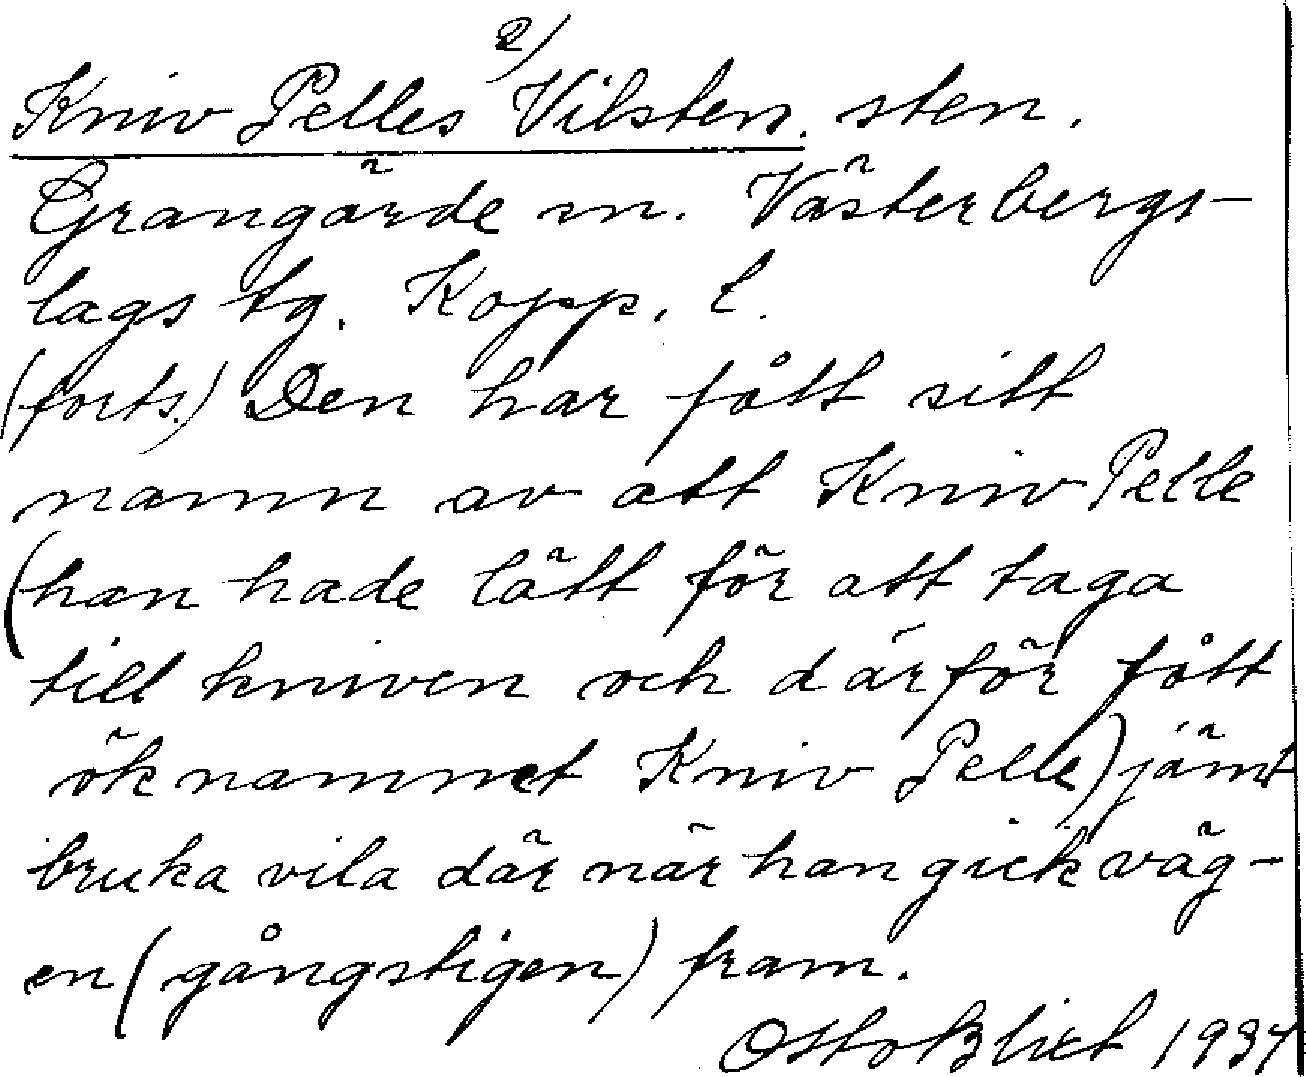 2)
Kniv Pelles Vilsten. sten.
Grangärde sn. Västerbergs-
lags tg. Kopp. l.
(forts.) Den har fått sitt
namn av att Kniv Pelle
(han hade lätt för att taga
till kniven och därför fått
öknamnet Kniv Pelle) jämt
bruka vila där när han gick väg-
en (gångstigen) fram.
Otto Blixt 1934